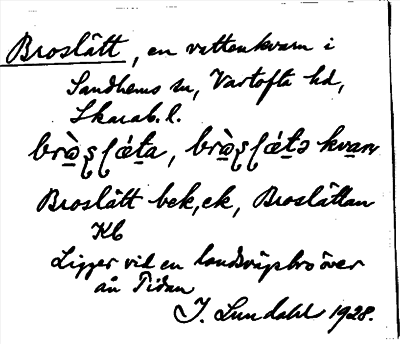 Broslätt, en vattenkvarn i
Sandhems sn, Vartofta hd,
Skarab. l.
Broslätt bek, ek, Broslättan
Kb
Ligger vid en landsvägsbro över
ån Tidan
J. Lundahl 1928.